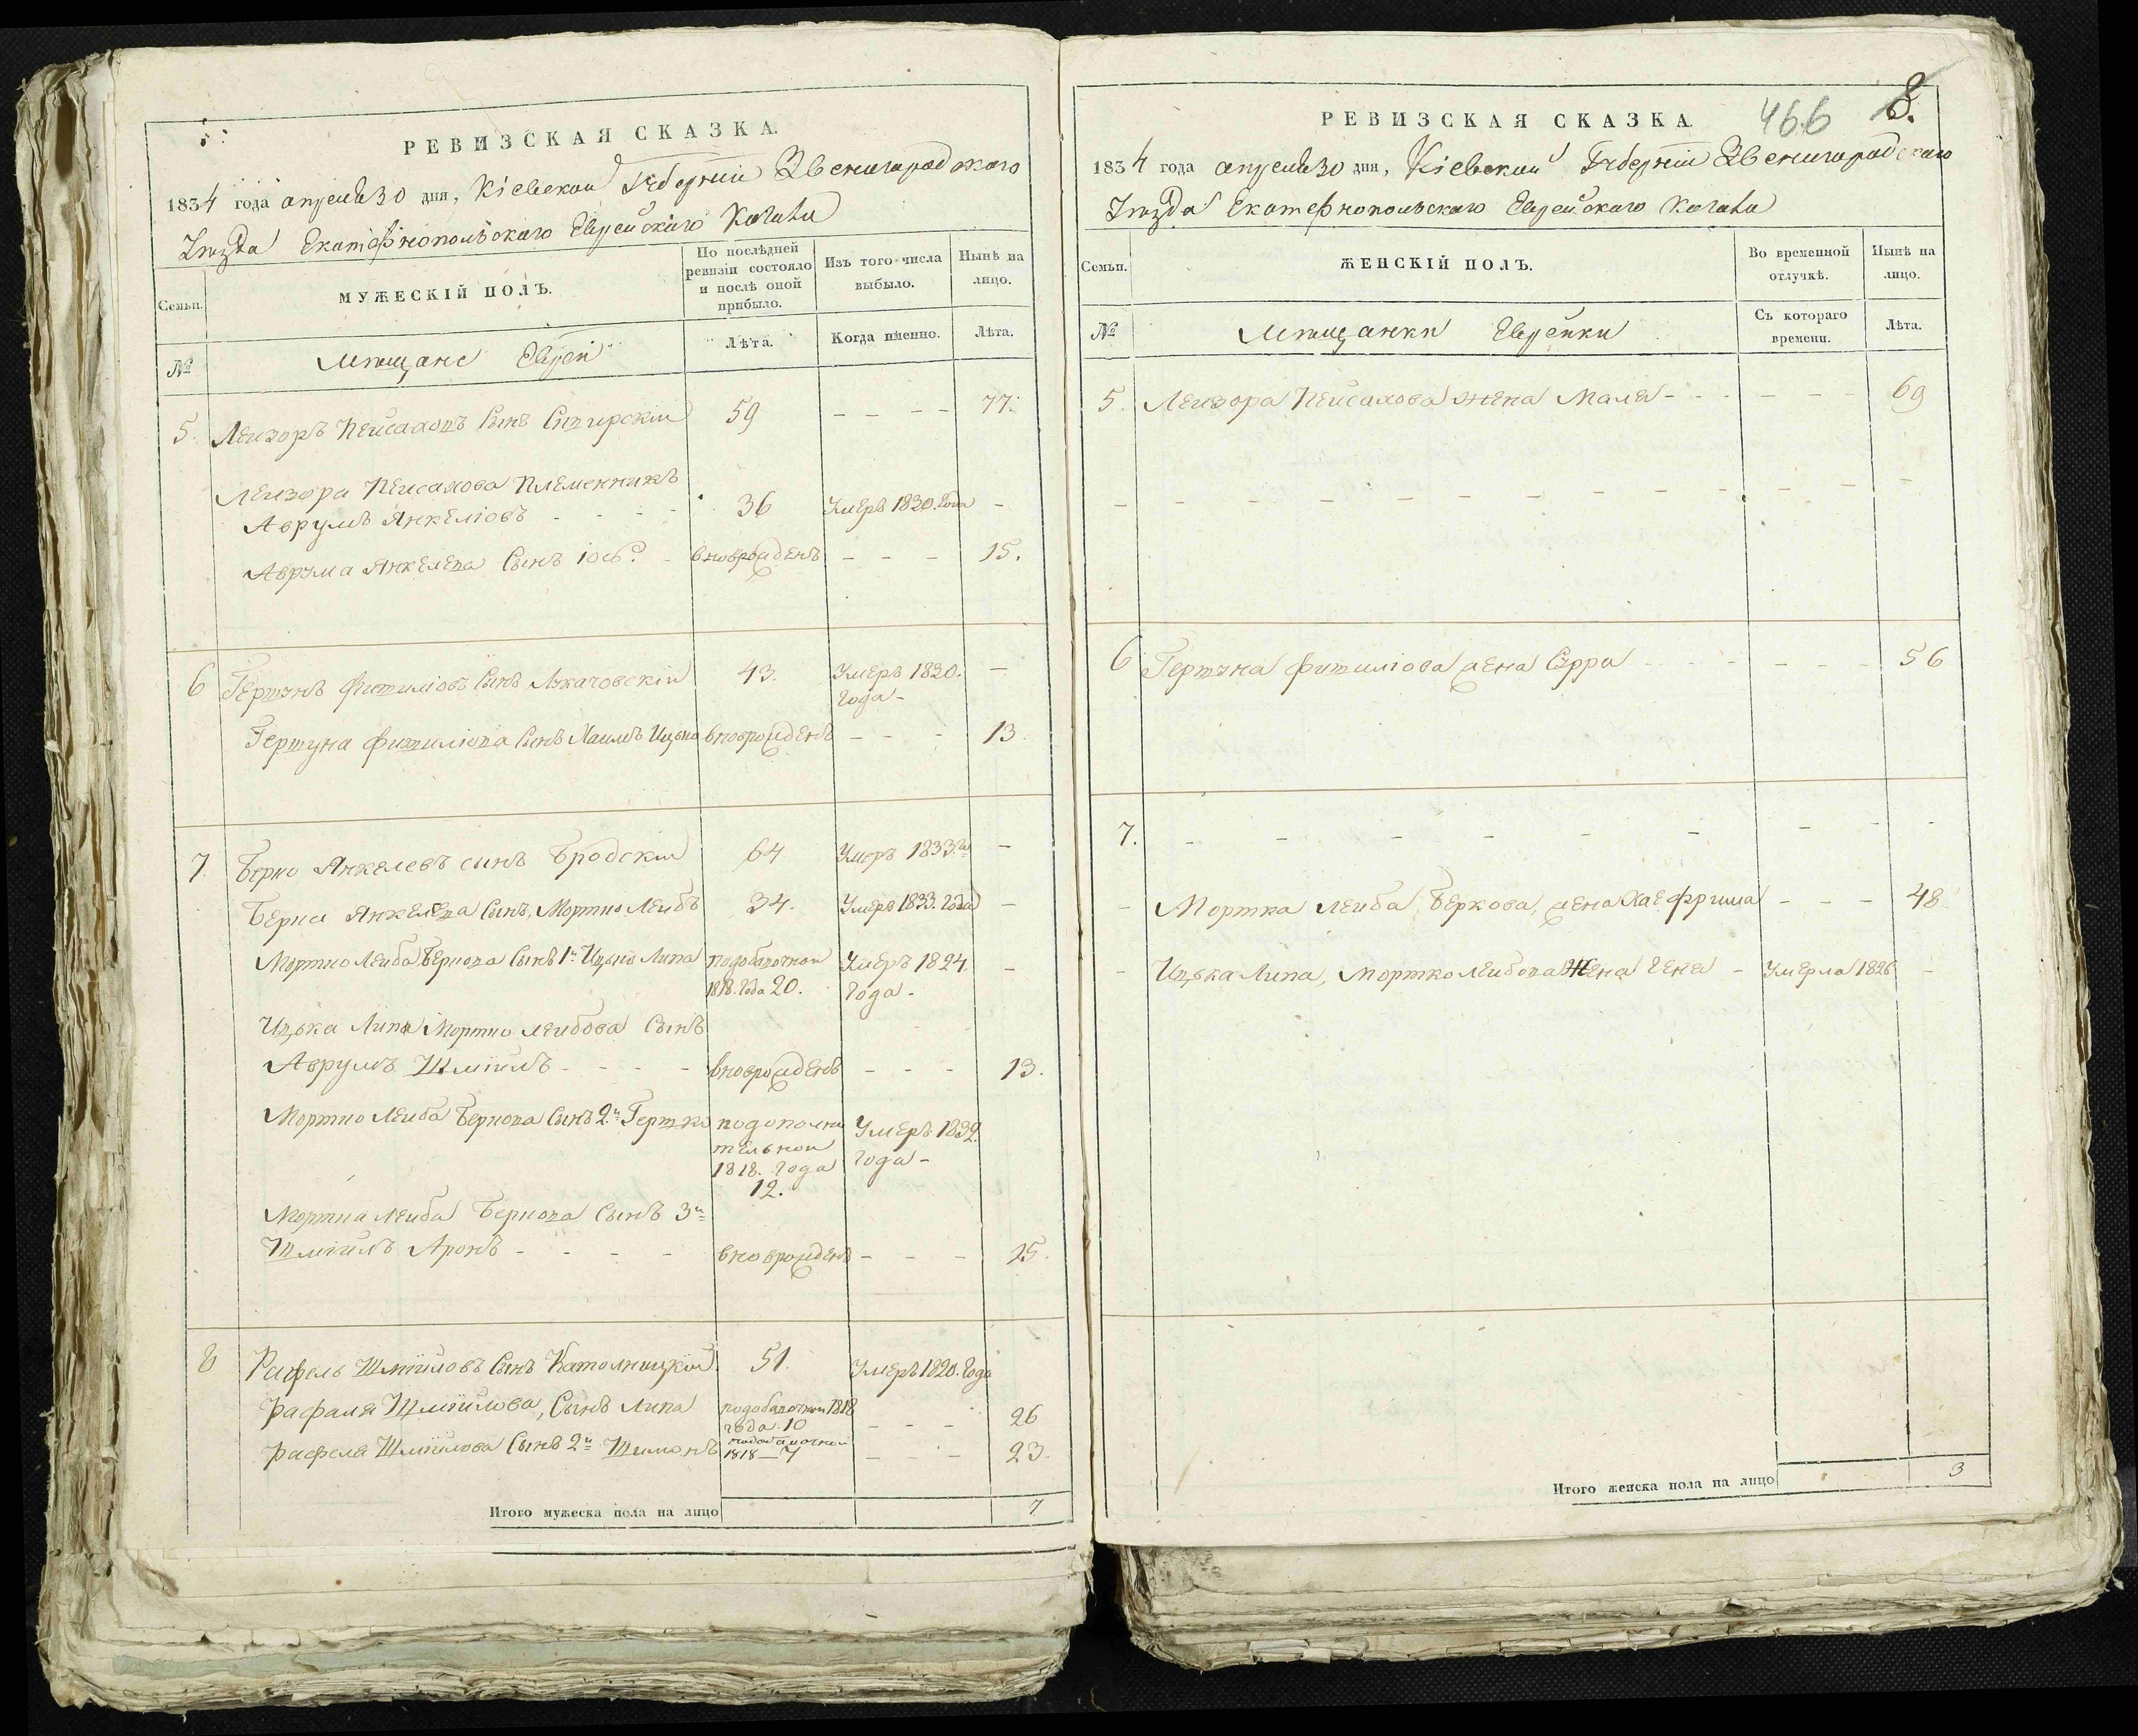 РЕВИЗСКАЯ СКАЗКА.
1834 года апреля 30 дня, Кіевской Губерніи Звенигородского
Уѣзда Екатеринопольского Еврейского Кагала
Семьи.
МУЖЕСКІЙ ПОЛЪ.
По послѣдней ревизіи состояло и послѣ оной прибыло.
Изъ того числа выбыло.
Нынѣ на лицо.
№
Мѣщане Евреи
Лѣта.
Когда именно.
Лѣта.
5. Лейзоръ Пейсаховъ Сынъ 59 – – – – 77.
Лейзора Пейсахова Племенникъ
Аврумъ Янкеліовъ - - - - 36 Умеръ 1830. Года –
Аврума Янкелева Сынъ Іосъ - вноврожденъ – – – 15.
6 Гершунъ Фишиліовъ Сынъ Лукачовскій 43. Умеръ 1820. –
Года -
Гершуна Фишиліова Сынъ Хаимъ Ицько вноврожденъ – – – 13.
7. Берко Янкелевъ сынъ Бродскій 64 Умеръ 1833. го –
Берка Янкелева Сынъ, Мортко Лейбъ 34. Умеръ 1833. года –
Мортко Лейба Беркова Сынъ 1й Ицько Липа подобавочной Умеръ 1824. –
1818. Года 20. Года -
Ицька Липа Мортко Лейбова Сынъ
Аврумъ Шміилъ - - - - вноврожденъ – – – 13.
Мортко Лейба Беркова Сынъ 2й Гершко подополни Умеръ 1832.
тельной Года -
1818. Года
12.
Мортка Лейба Беркова Сынъ 3й
Шміилъ Аронъ - - - - вноврожденъ – – – 15.
8 Рафель Шміиловъ Сынъ 51. Умеръ 1820. Года
Рафаля Шміилова, Сынъ Липа подобавочной 1818
года. 10 – – – 26
Рафеля Шміилова Сынъ 2й Шимонъ подобавочной
1818 – 7 – – – 23.
Итого мужеска пола на лицо 7
466 8.
РЕВИЗСКАЯ СКАЗКА.
1834 года апреля 30 дня, Кіевской Губерніи Звенигородского
Уѣзда Екатеринопольского Еврейского Кагала
Семьи.
ЖЕНСКІЙ ПОЛЪ.
Во временной отлучкѣ.
Нынѣ на лицо.
№
Мѣщанки Еврейки
Съ котораго времени.
Лѣта.
5. Лейзора Пейсахова жена Маля - - – – – 69
6 Гершуна Фишиліова жена Сурра - - - – – – 56
7. – – – – – – – – –
– Мортка Лейба Беркова, жена Хае Фрима – – – 48
– Ицька Липа, Мортко Лейбова Жена Геня – Умерла 1826 –
Итого женска пола на лицо 3